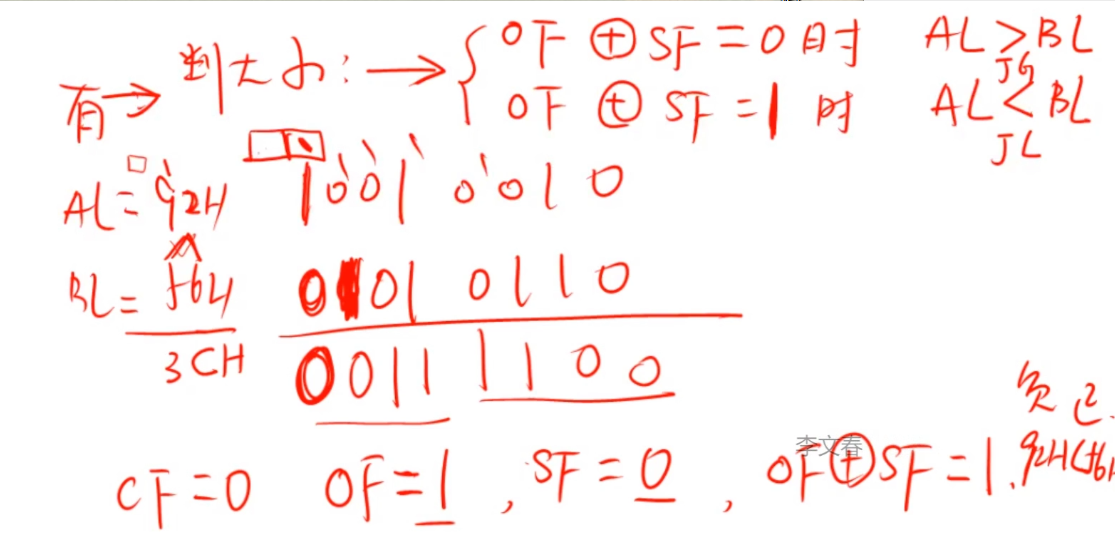 有→ 判大小:→{ OF ⊕ SF = 0 时 AL > BL JG
OF ⊕ SF = 1 时 AL < BL JL
AL = 92H 1001 0010
BL = 56H 0101 0110
3CH 0011 1100
负
李文春
CF = 0 OF = 1 , SF = 0 , OF ⊕ SF = 1 . 92H<56H